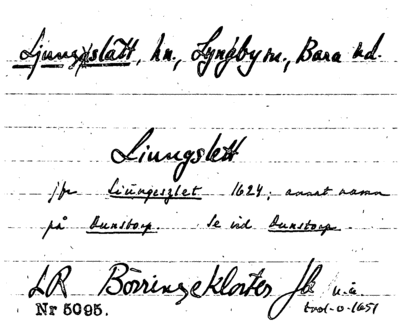 Ljungslätt, hn, Lyngby sn., Bara hd.
Liungslett
jfr Liungeszlet 1624; annat namn
på Dunstorp. Se vid Dunstorp.
LR Börringe Kloster Jb u.å.
Nr 5095. trol. 0. 1651